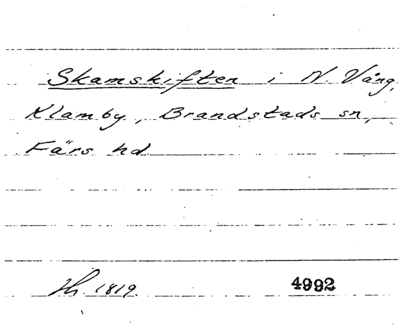 Skamskiften i N. Vång,
Klamby, Brandstads sn,
Färs hd
Hh. 1819. 4992